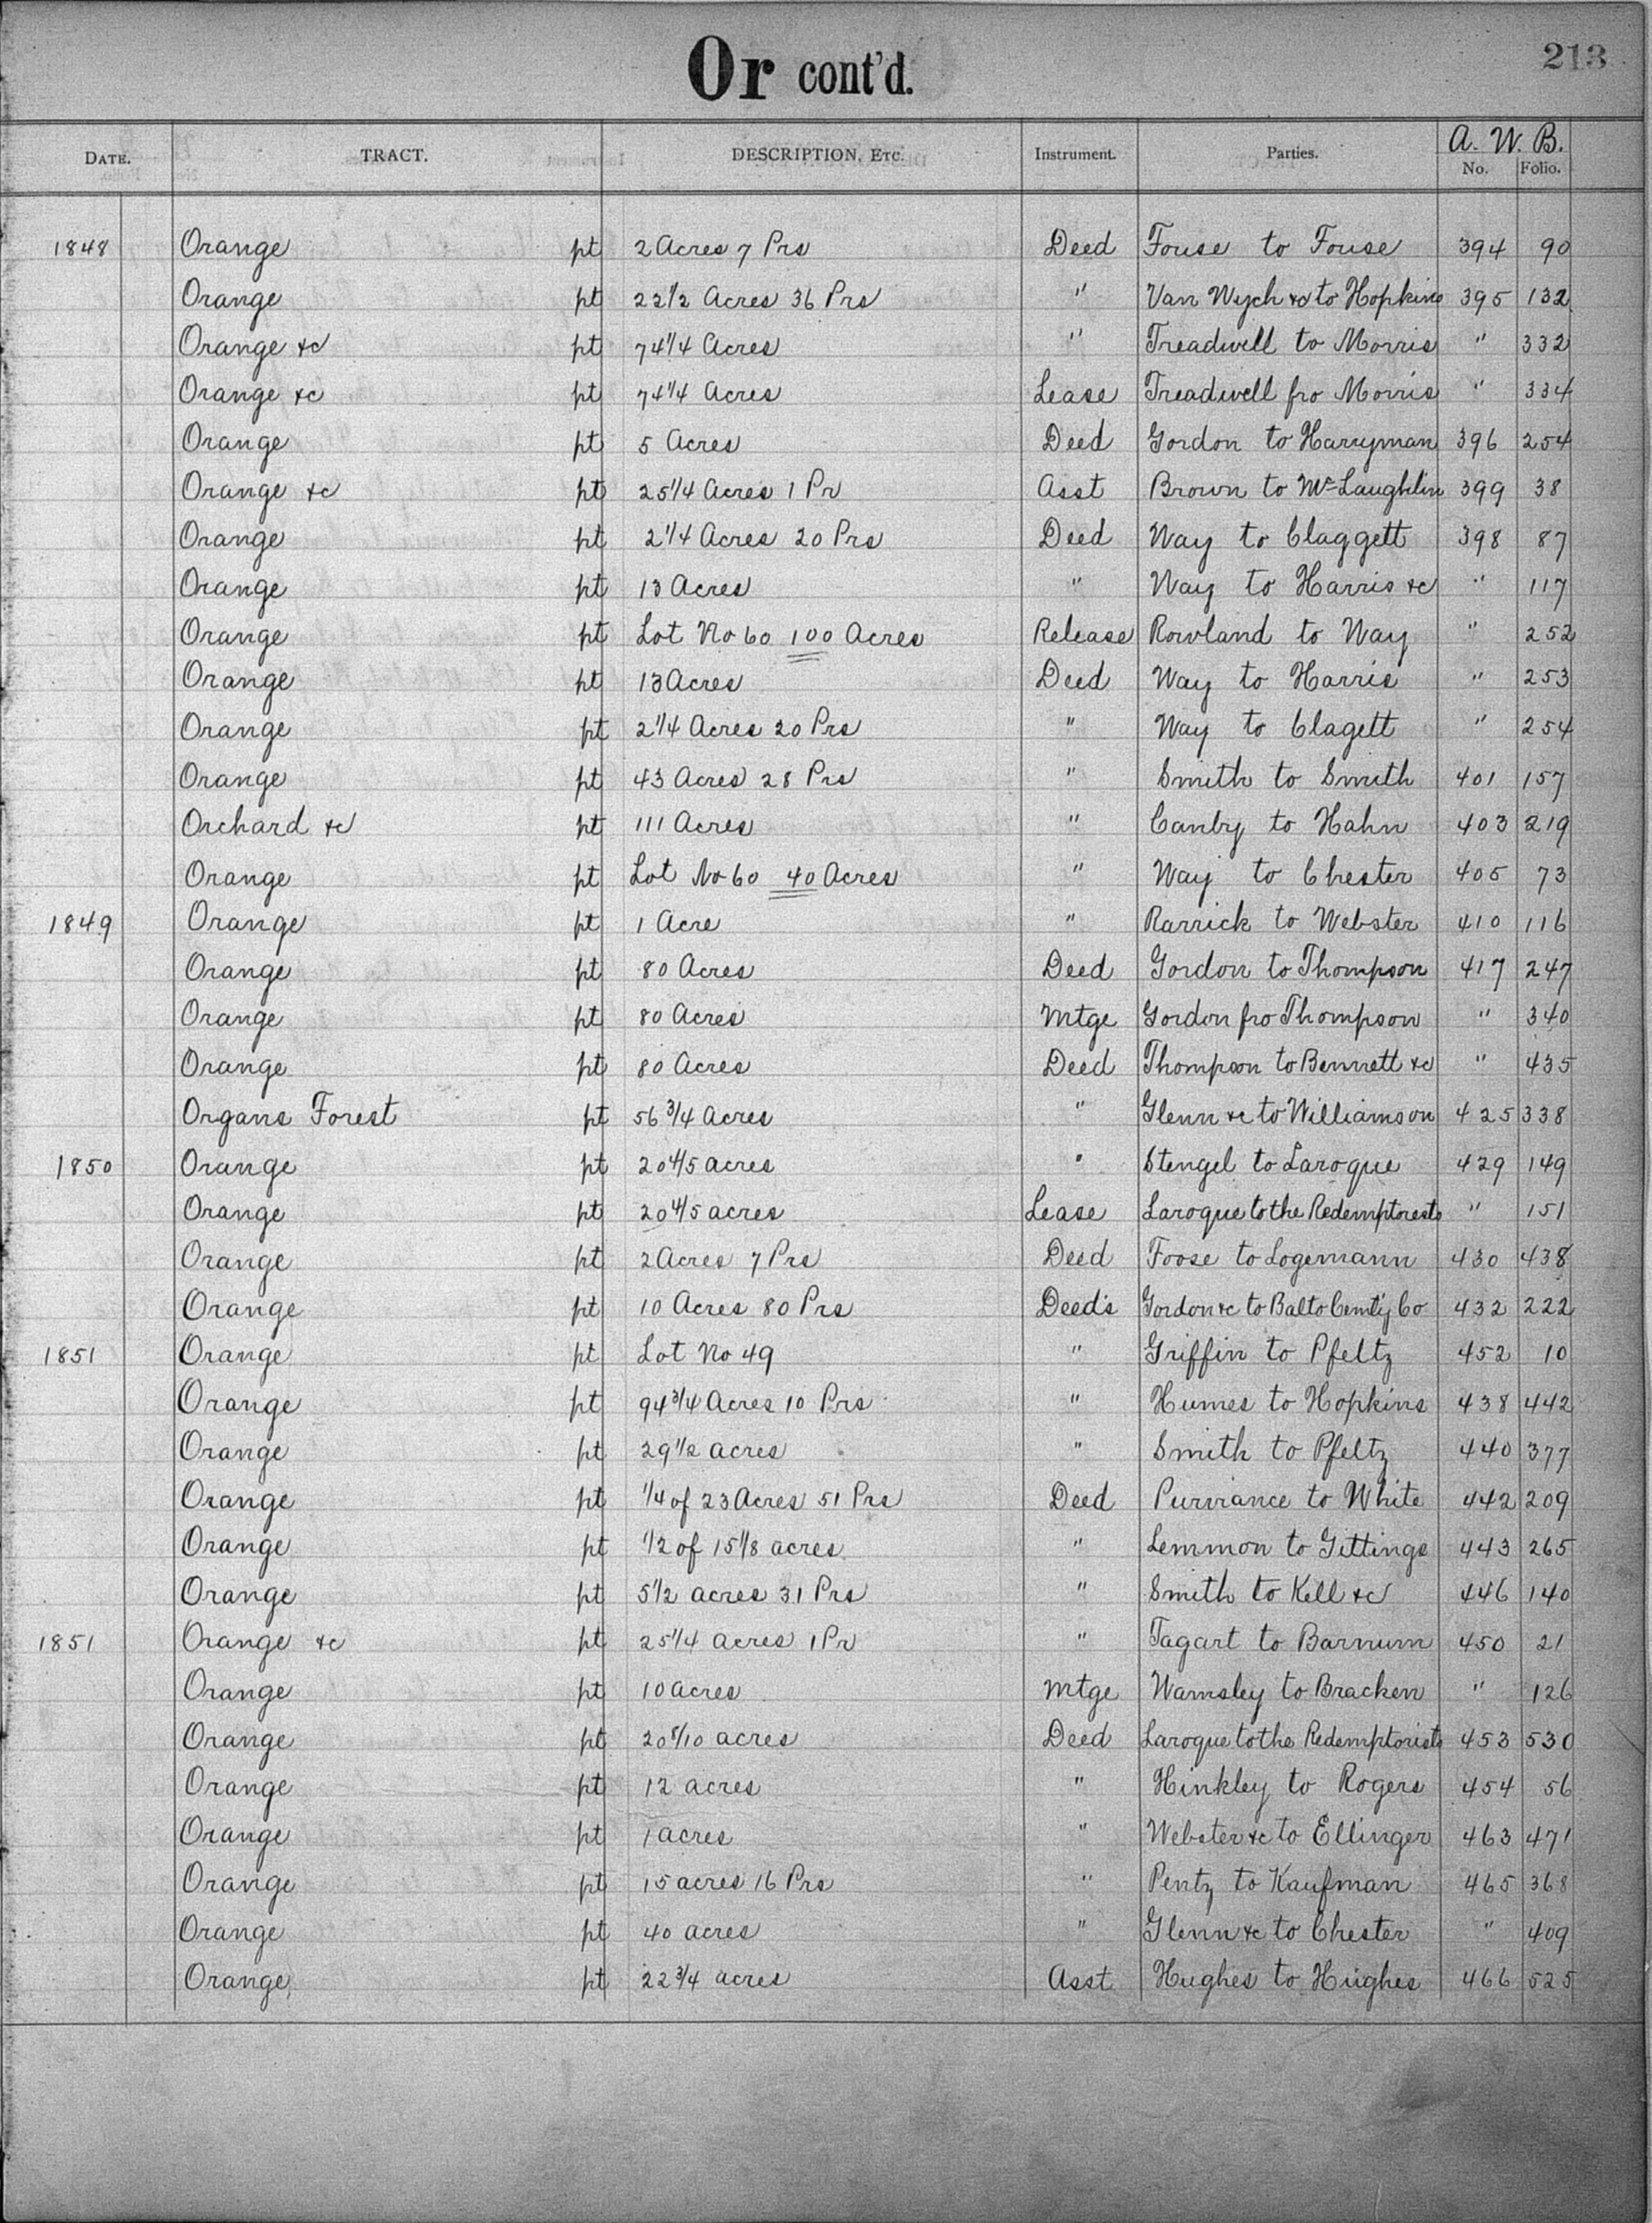 Or cont'd.
213
DATE. TRACT. DESCRIPTION, ETC. Instrument. Parties. A. W. B. No. Folio.
1848 Orange pt 2 Acres 7 Prs Deed Fouse to Fouse 394 90
Orange pt 22 1/2 Acres 36 Prs " Van Wych &c to Hopkins 395 132
Orange &c pt 74 1/4 Acres " Treadwell to Morris " 332
Orange &c pt 74 1/4 Acres Lease Treadwell fro Morris " 334
Orange pt 5 Acres Deed Gordon to Harryman 396 254
Orange &c pt 25 1/4 Acres 1 Pr Asst Brown to McLaughlin 399 38
Orange pt 2 1/4 Acres 20 Prs Deed Way to Claggett 398 87
Orange pt 13 Acres " Way to Harris &c " 117
Orange pt Lot No 60 100 Acres Release Rowland to Way " 252
Orange pt 13 Acres Deed Way to Harris " 253
Orange pt 2 1/4 Acres 20 Prs " Way to Clagett " 254
Orange pt 43 Acres 28 Prs " Smith to Smith 401 157
Orchard &c pt 111 Acres " Canby to Hahn 403 219
Orange pt Lot No 60 40 Acres " Way to Chester 405 73
1849 Orange pt 1 Acre " Rarrick to Webster 410 116
Orange pt 80 Acres Deed Gordon to Thompson 417 247
Orange pt 80 Acres Mtge Gordon fro Thompson " 340
Orange pt 80 Acres Deed Thompson to Bennett &c " 435
Organs Forest pt 56 3/4 Acres " Glenn &c to Williamson 425 338
1850 Orange pt 20 4/5 acres " Stengel to Laroque 429 149
Orange pt 20 4/5 acres Lease Laroque to the Redemptorests " 151
Orange pt 2 Acres 7 Prs Deed Foose to Logemann 430 438
Orange pt 10 Acres 80 Prs Deed's Gordon &c to Balto Cemt'y Co 432 222
1851 Orange pt Lot No 49 " Griffin to Pfeltz 452 10
Orange pt 94 3/4 Acres 10 Prs " Humes to Hopkins 438 442
Orange pt 29 1/2 acres " Smith to Pfeltz 440 377
Orange pt 1/4 of 23 Acres 51 Prs Deed Purviance to White 442 209
Orange pt 1/2 of 15 1/8 acres " Lemmon to Gittings 443 265
Orange pt 5 1/2 acres 31 Prs " Smith to Kell &c 446 140
1851 Orange &c pt 25 1/4 acres 1 Pr " Tagart to Barnum 450 21
Orange pt 10 acres Mtge Wamsley to Bracken " 126
Orange pt 20 8/10 acres Deed Laroque to the Redemptorists 453 530
Orange pt 12 acres " Hinkley to Rogers 454 56
Orange pt 1 acres " Webster &c to Ellinger 463 471
Orange pt 15 acres 16 Prs " Pentz to Kaufman 465 368
Orange pt 40 acres " Glenn &c to Chester " 409
Orange pt 22 3/4 acres Asst Hughes to Hughes 466 525